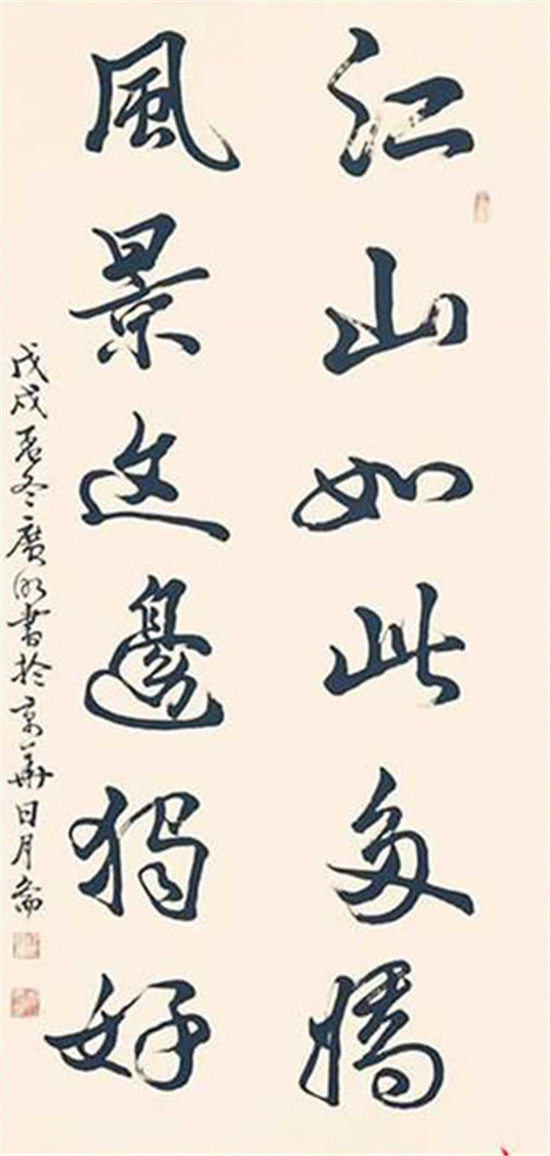 江山如此多嬌
風景这邊獨好
戊戌孟冬廣明書於京華日月齋